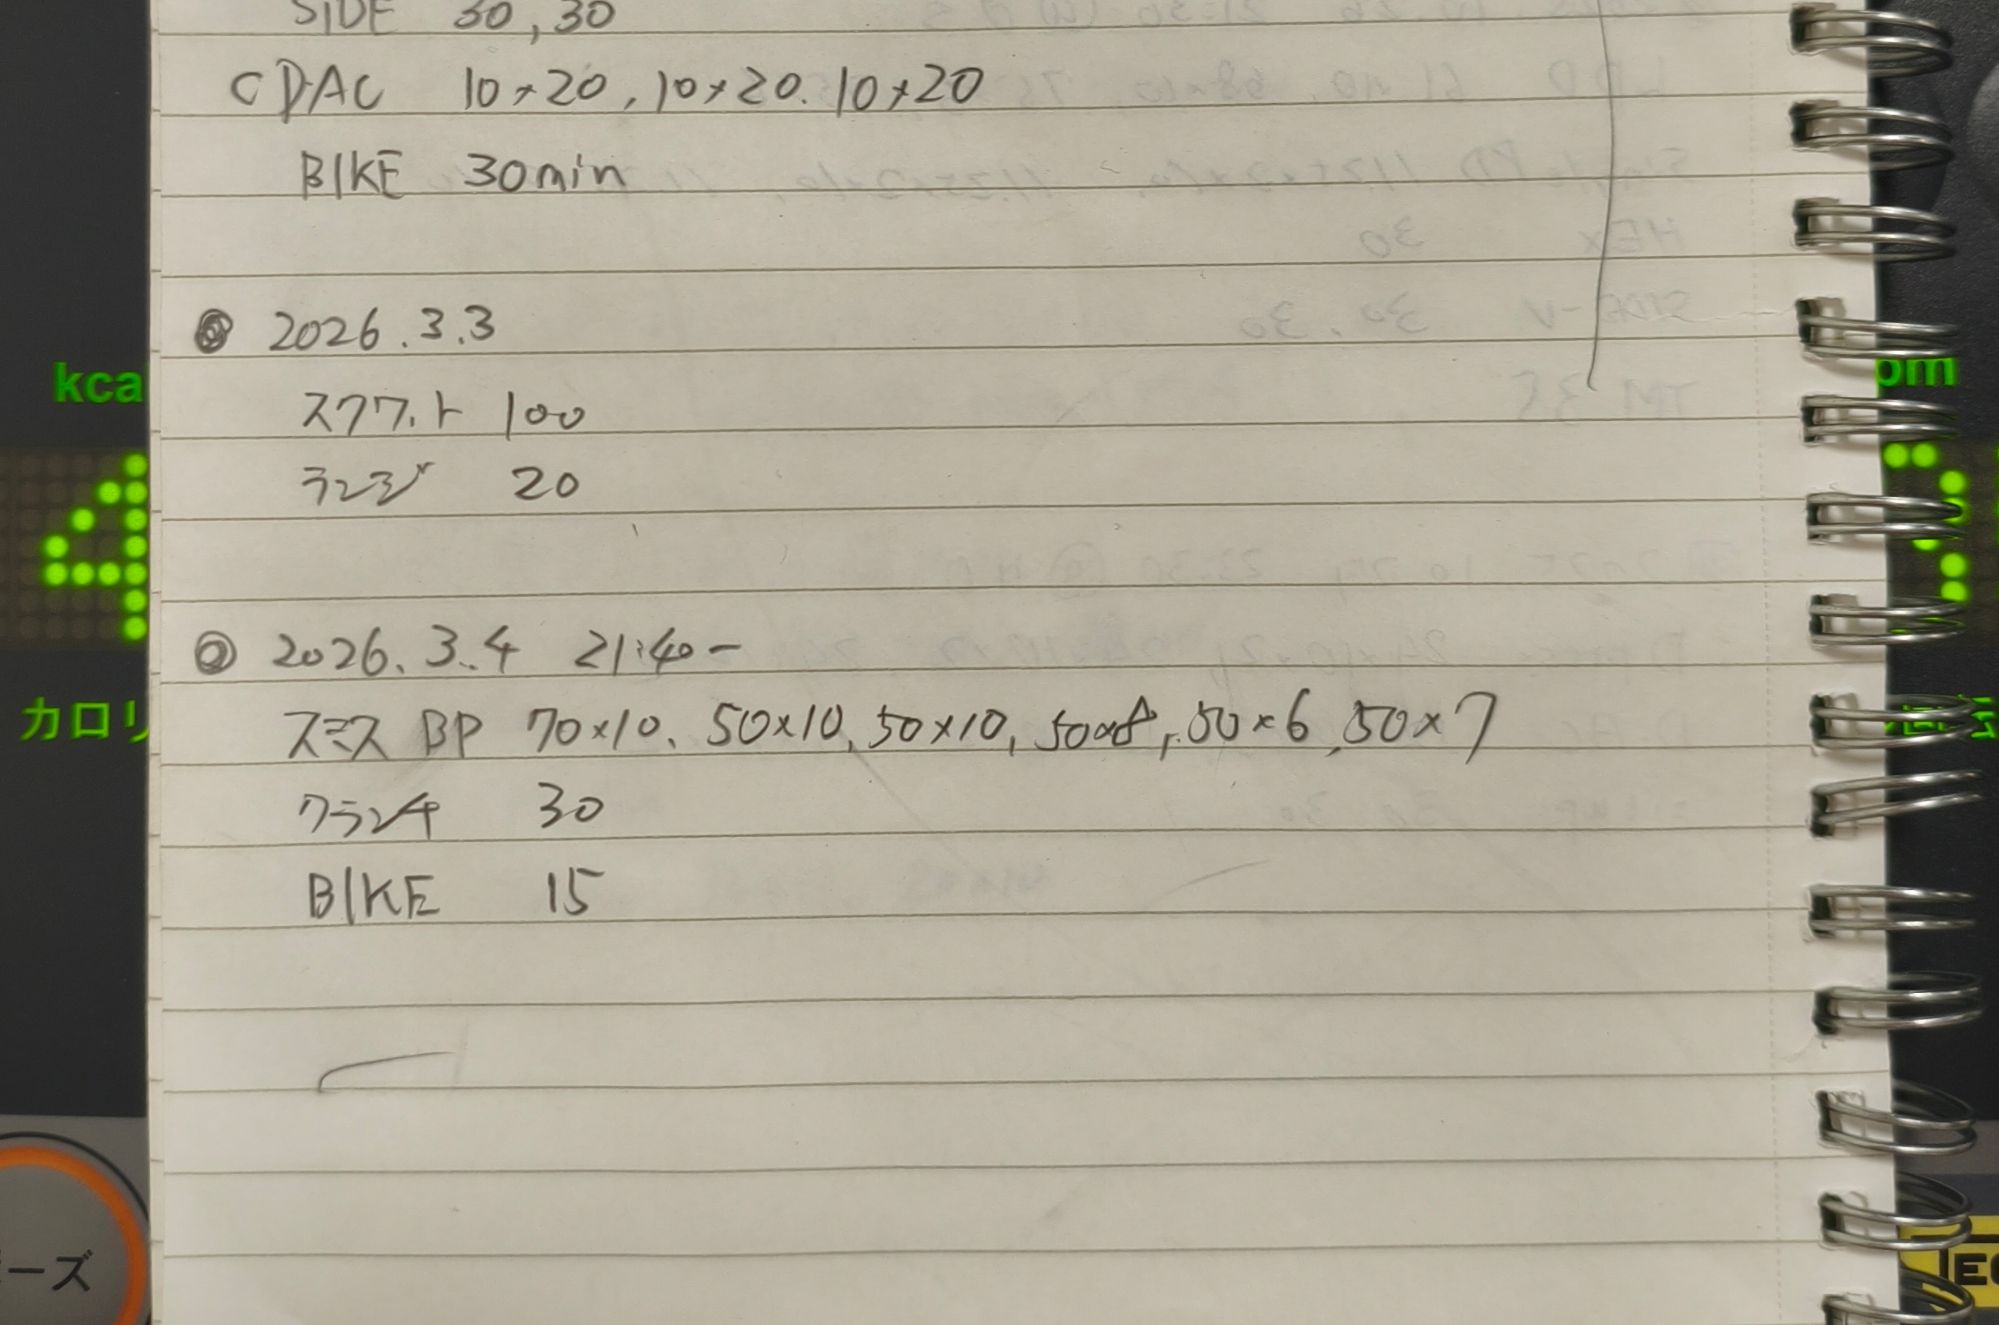 SIDE 30, 30
CDAC 10×20, 10×20. 10×20
BIKE 30min
◎ 2026.3.3
スクワット 100
ランジ 20
◎ 2026.3.4 21:40-
スミス BP 70×10、50×10, 50×10, 50×8, 50×6, 50×7
クランチ 30
BIKE 15
kca
4
カロリ
ーズ
pm